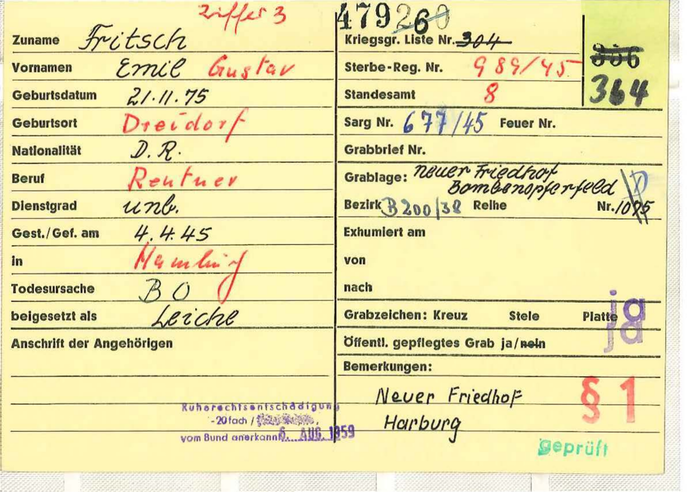 Ziffer 3
Zuname Fritsch
Vornamen Emil Gustav
Geburtsdatum 21.11.75
Geburtsort Dreidorf
Nationalität D.R.
Beruf Rentner
Dienstgrad unb.
Gest./Gef. am 4.4.45
in Hamburg
Todesursache BO
beigesetzt als Leiche
Anschrift der Angehörigen
Ruherechtsentschädigung
-20fach /
vom Bund anerkannt 6. AUG. 1959
479260
Kriegsgr. Liste Nr. 304
336
364
Sterbe-Reg. Nr. 989/45
Standesamt 8
Sarg Nr. 677/45 Feuer Nr.
Grabbrief Nr.
Grablage: neuer Friedhof
Bombenopferfeld
Bezirk B200/38 Reihe Nr. 1095
Exhumiert am
von
nach
Grabzeichen: Kreuz Stele Platte ja
Öffentl. gepflegtes Grab ja/nein ja
Bemerkungen:
Neuer Friedhof
Harburg
§ 1
geprüft